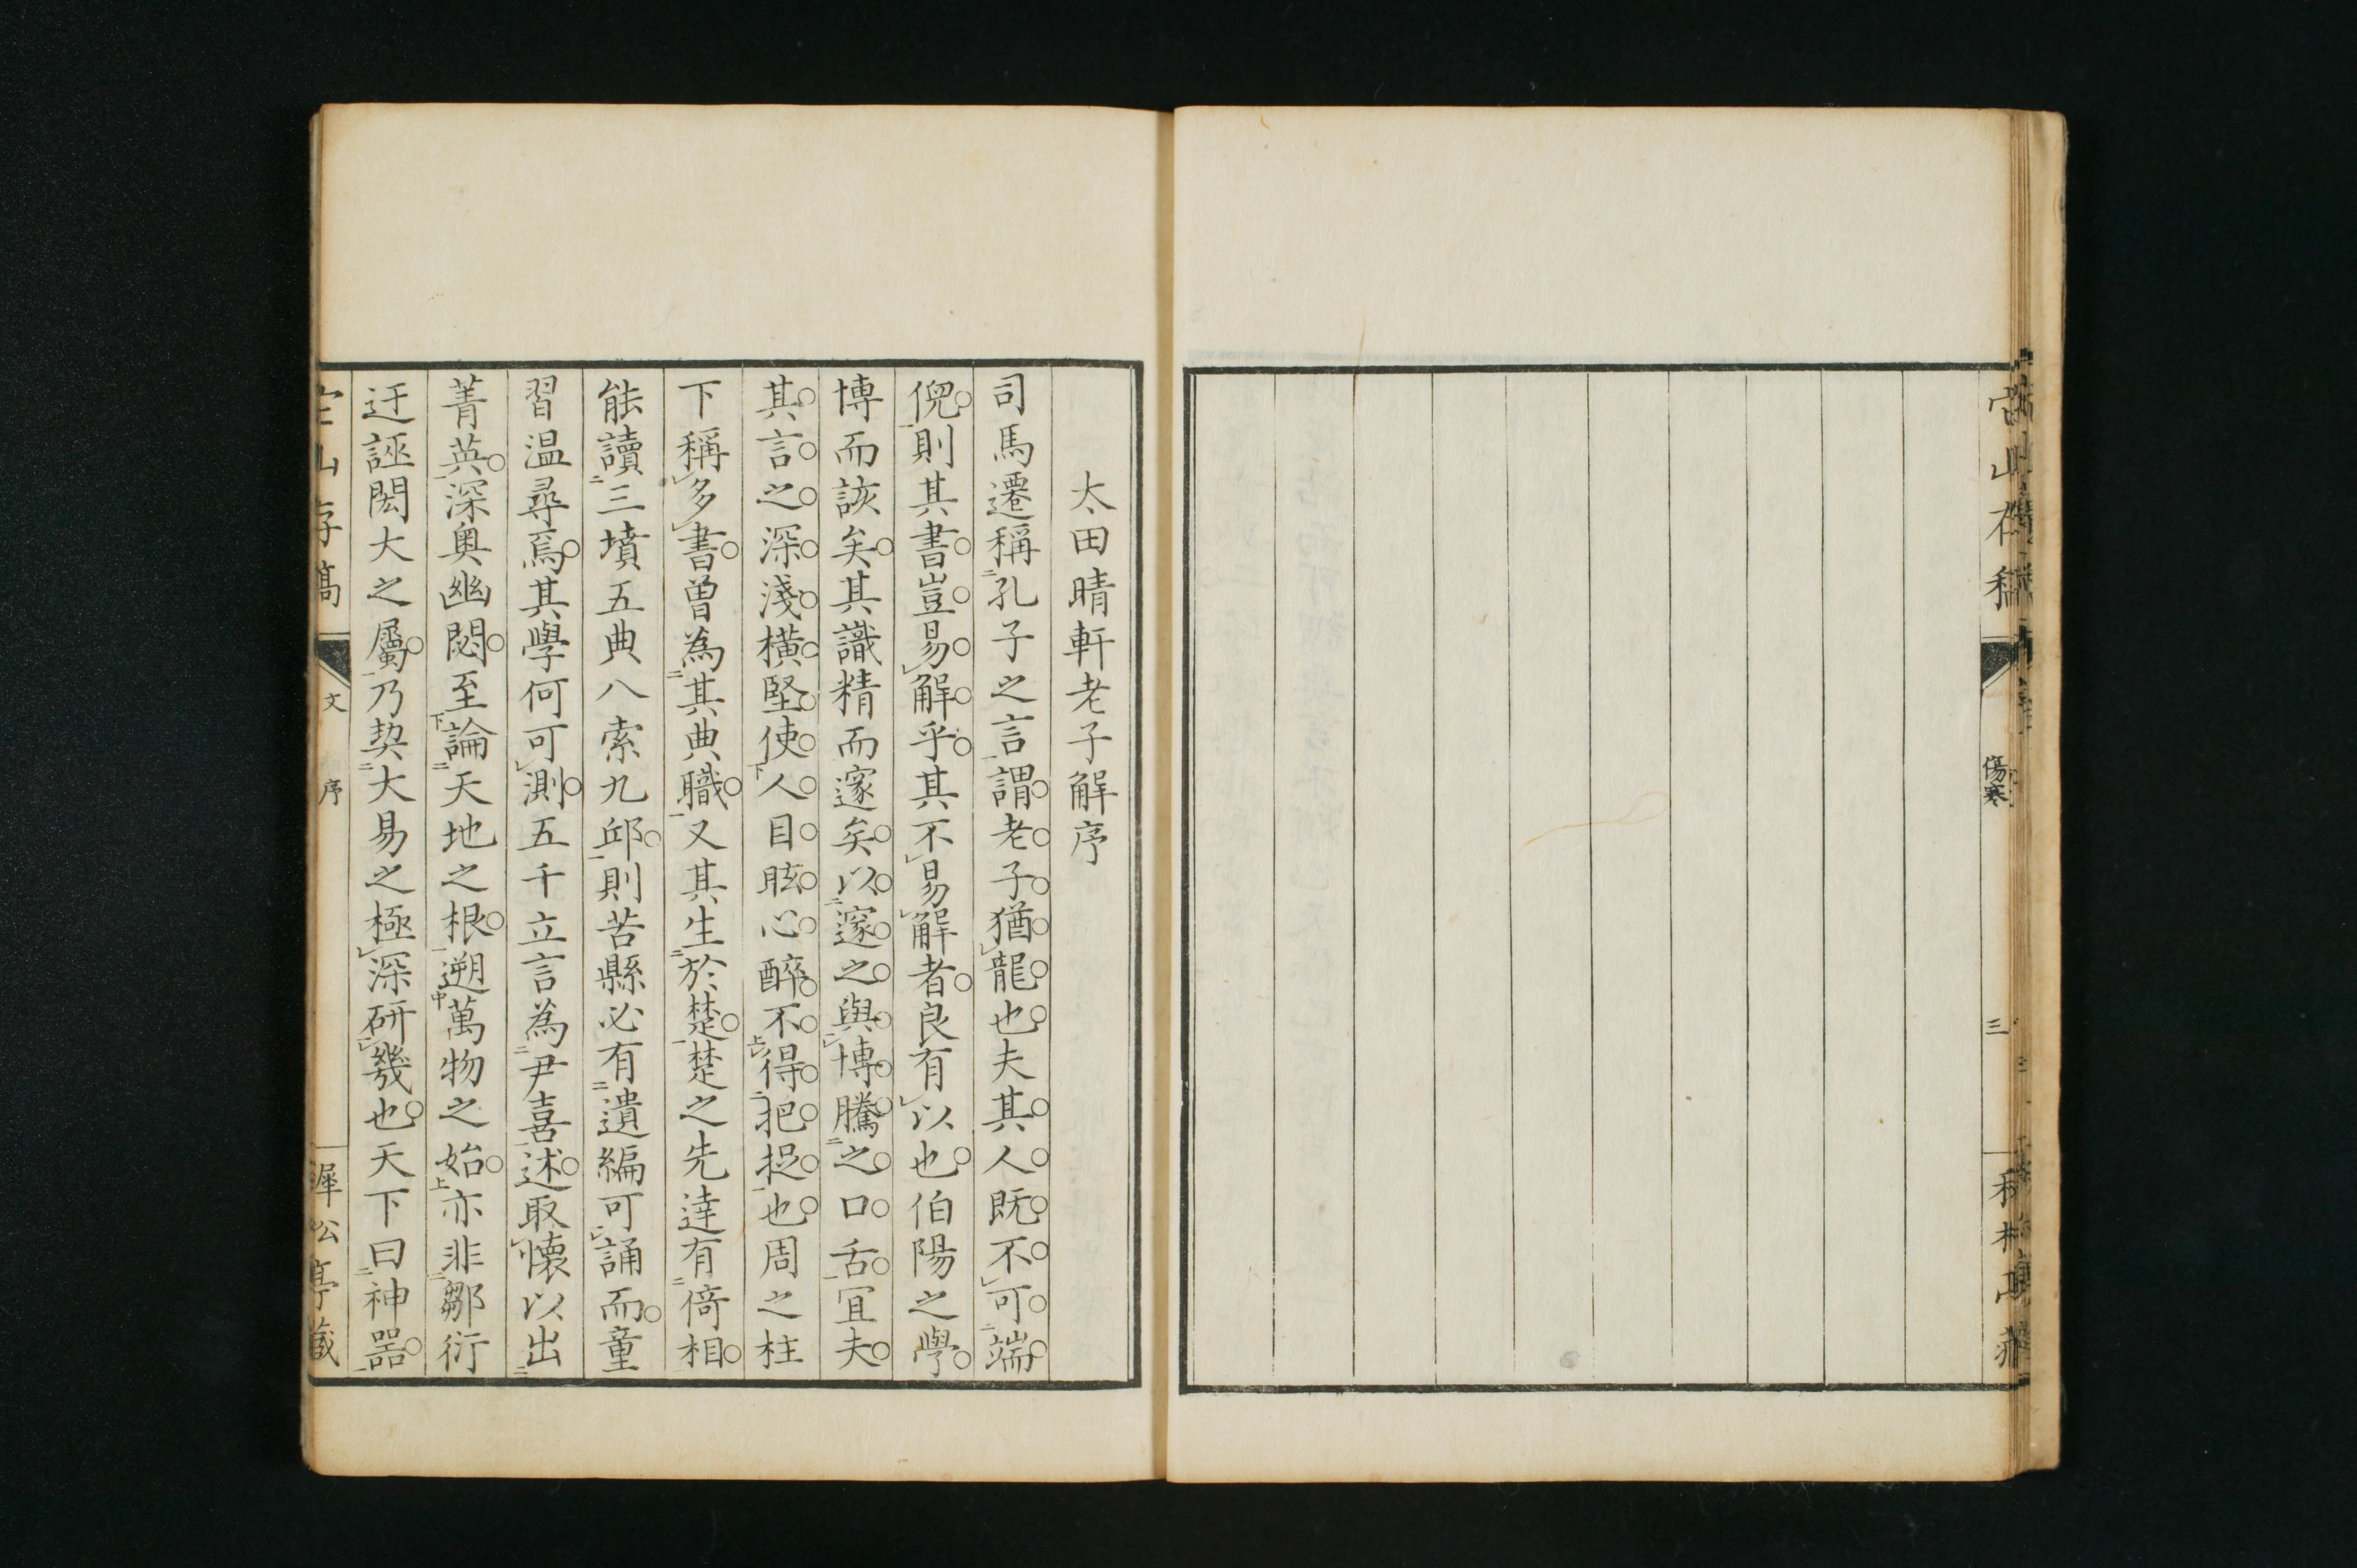 傷寒
三
太田晴軒老子解序
司馬遷稱孔子之言謂老子猶龍也夫其人既不可端
倪則其書豈易解乎其不易解者良有以也伯陽之學
博而該矣其識精而邃矣以邃之與博騰之口舌宜夫
其言之深淺橫堅使人目眩心醉不得把捉也周之柱
下稱多書曽為其典職又其生於楚楚之先達有倚相
能讀三墳五典八索九邱則苦縣必有遺編可誦而童
習温尋焉其學何可測五千立言為尹喜述取懷以出
菁英深奧幽閟至論天地之根遡萬物之始亦非鄒衍
迂誣閎大之屬乃契大易之極深研幾也天下曰神器
山存稿 文 序 犀公亭藏